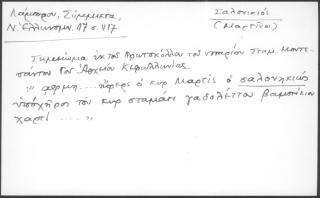 Λάμπρου, Σύμμικτα,
Ν. Ελληνομν. 17 σ. 417
Σαλονικιός
(Μαρτίνος)
Σημείωμα εκ του Πρωτοκόλλου του νοταρίου Σταμ. Μοντε-
σάντου του Αρχείου Κεφαλληνίας.
" αφμη.... ήφερε ο κυρ Μαρτίς ο σαλονικιός
υπόχηρος του κυρ σταμάτι γαδολέττον βαμπάκιον
χαρτί ..... "